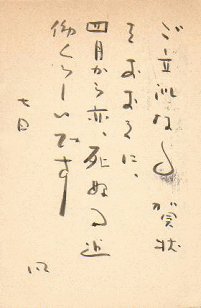 ご立派なる 賀状
そおおそに、
四月から亦、死ぬる迄
働くらしいです
七日